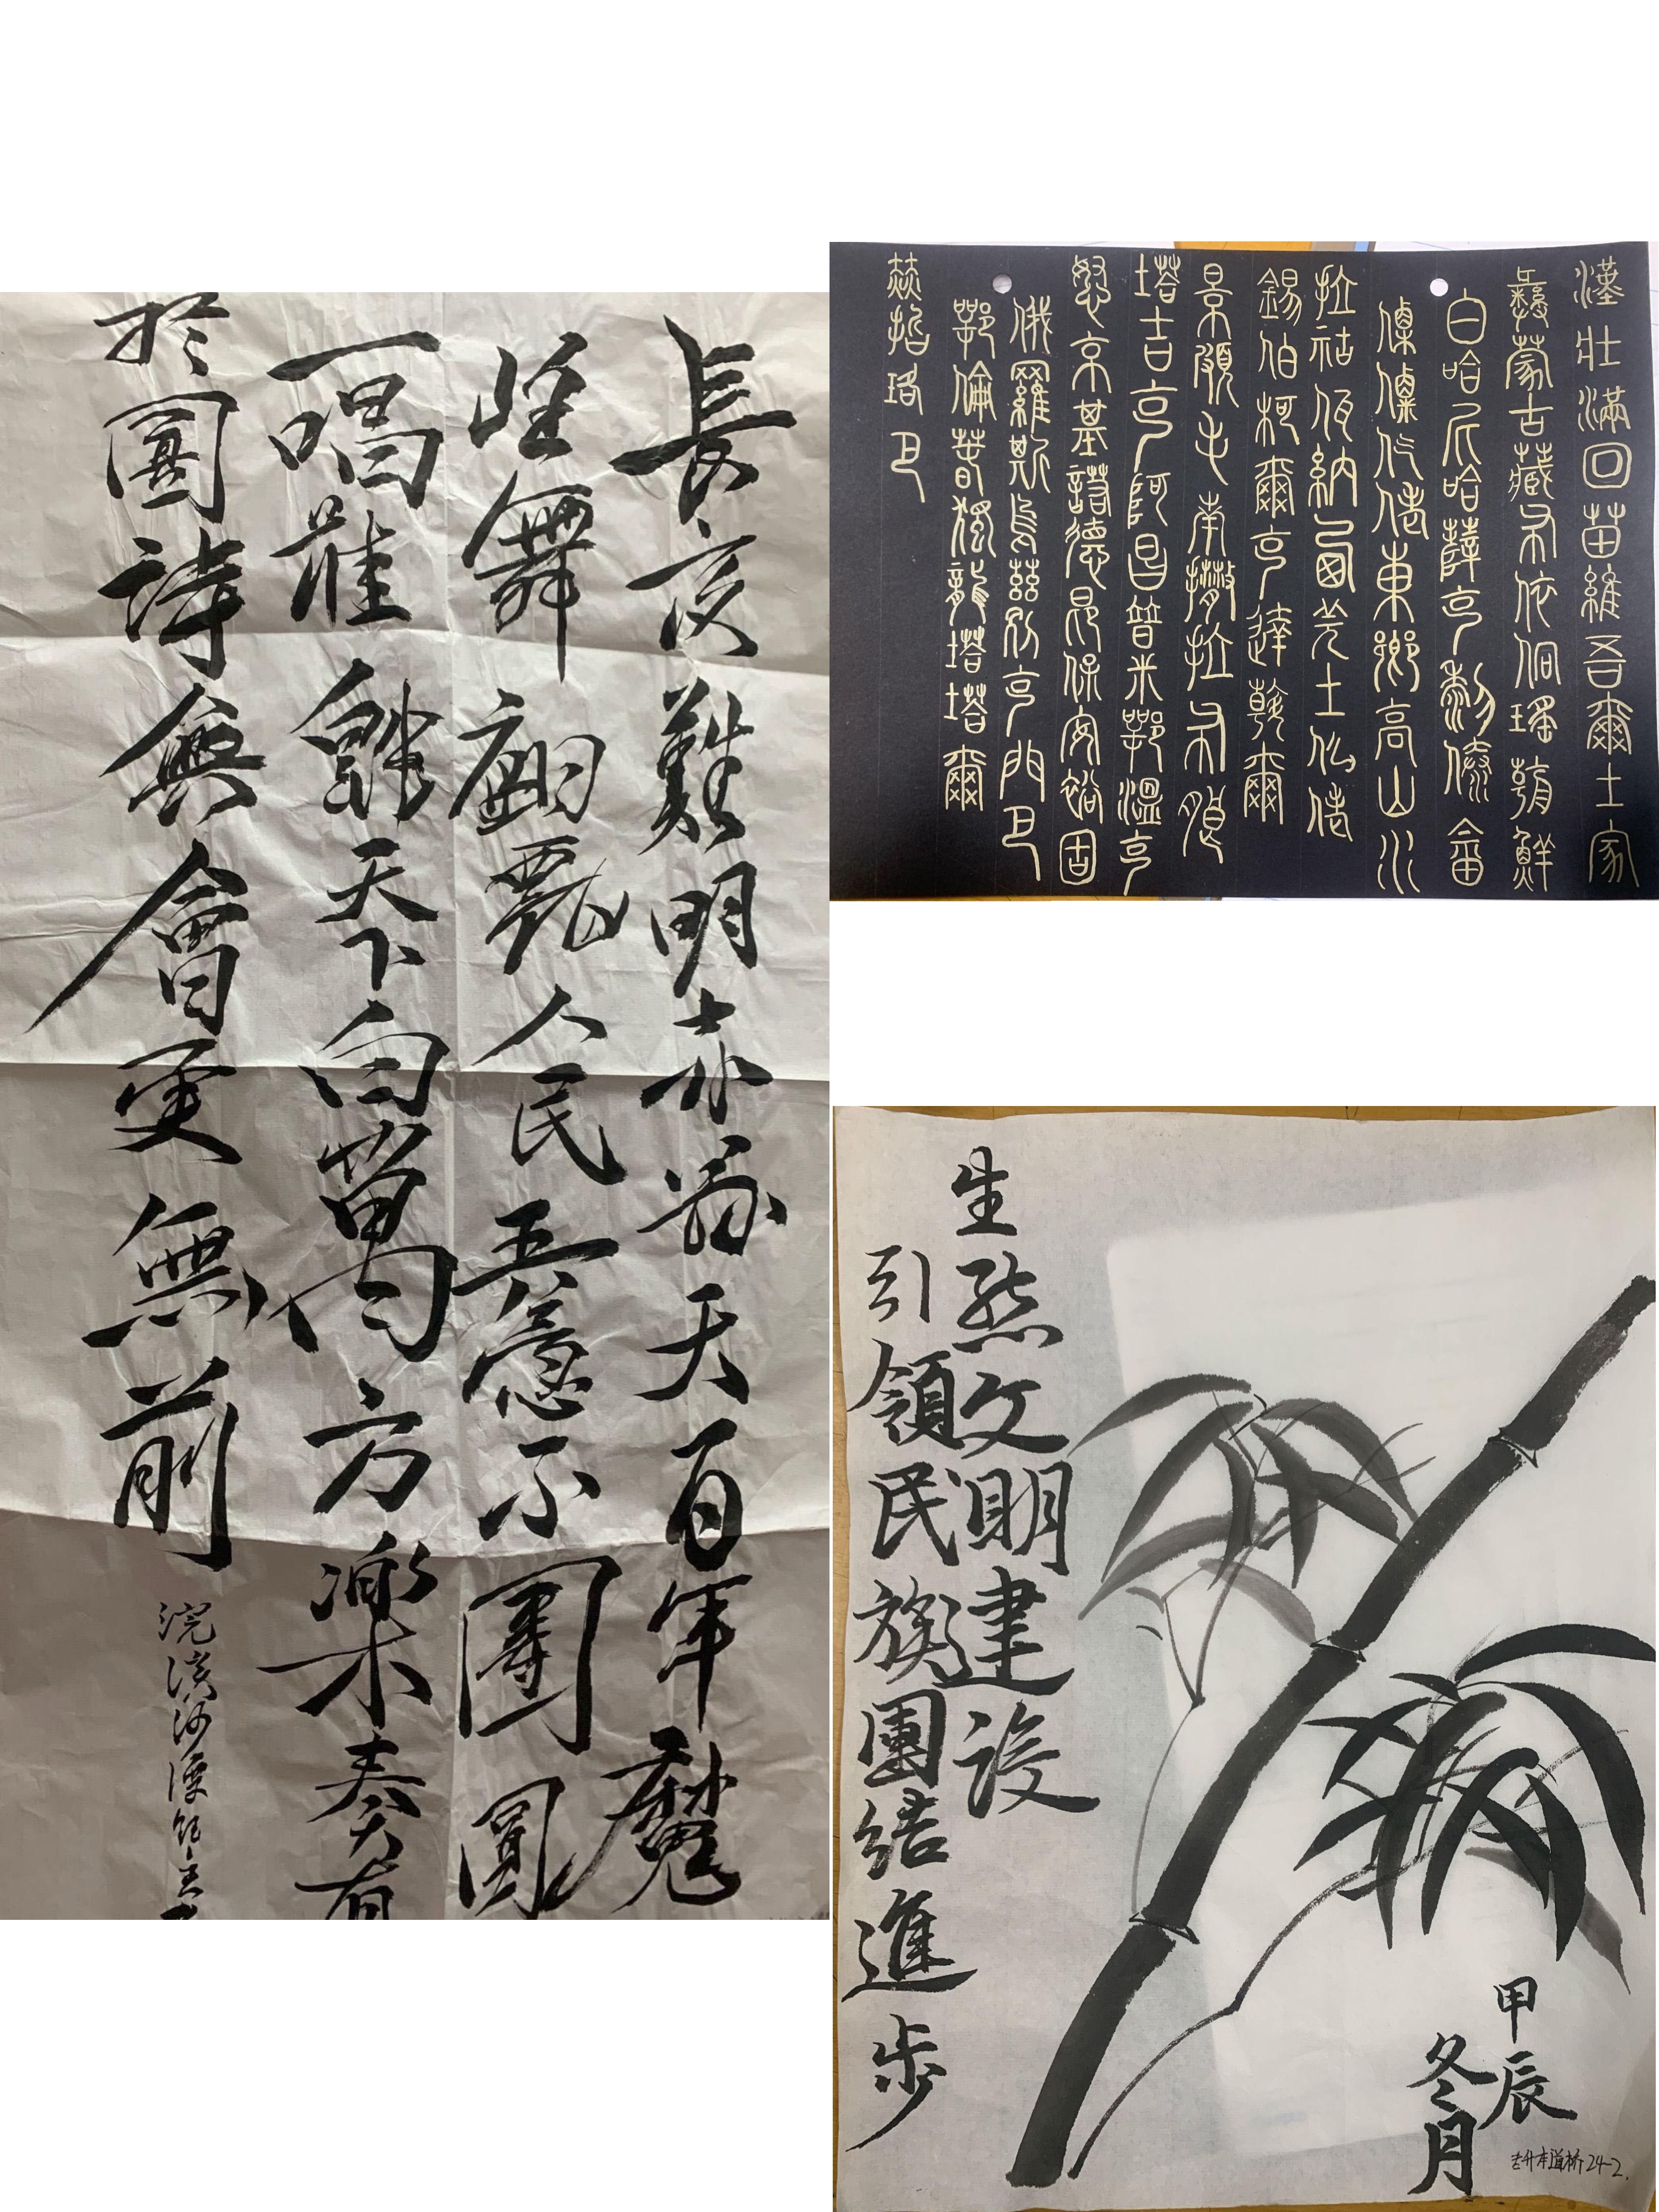 長夜難明赤縣天百年魔
怪舞翩躚人民五億不團圓
一唱雄雞天下白萬方樂奏有
於圓詩興會更無前
浣溪沙
漢壯滿回苗維吾爾土家
彝蒙古藏布依侗瑤朝鮮
白哈尼哈薩克黎傣畲
傈僳仡佬東鄉高山水
拉祜佤納西羌土仫佬
錫伯柯爾克達斡爾
景頗毛南撒拉布朗
塔吉克阿昌普米鄂溫克
怒京基諾德昂保安裕固
俄羅斯烏茲別克門巴
鄂倫春獨龍塔塔爾
赫哲珞巴
生態文明建設
引領民族團結進步
甲辰
冬月
专升本道桥24-2.